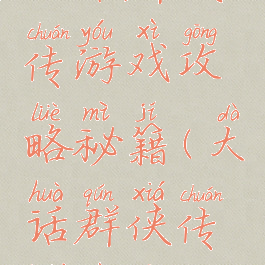 chuán yóu xì gōng
传游戏攻
lüè mì jí dà
略秘籍(大
huà qún xiá chuán
话群侠传